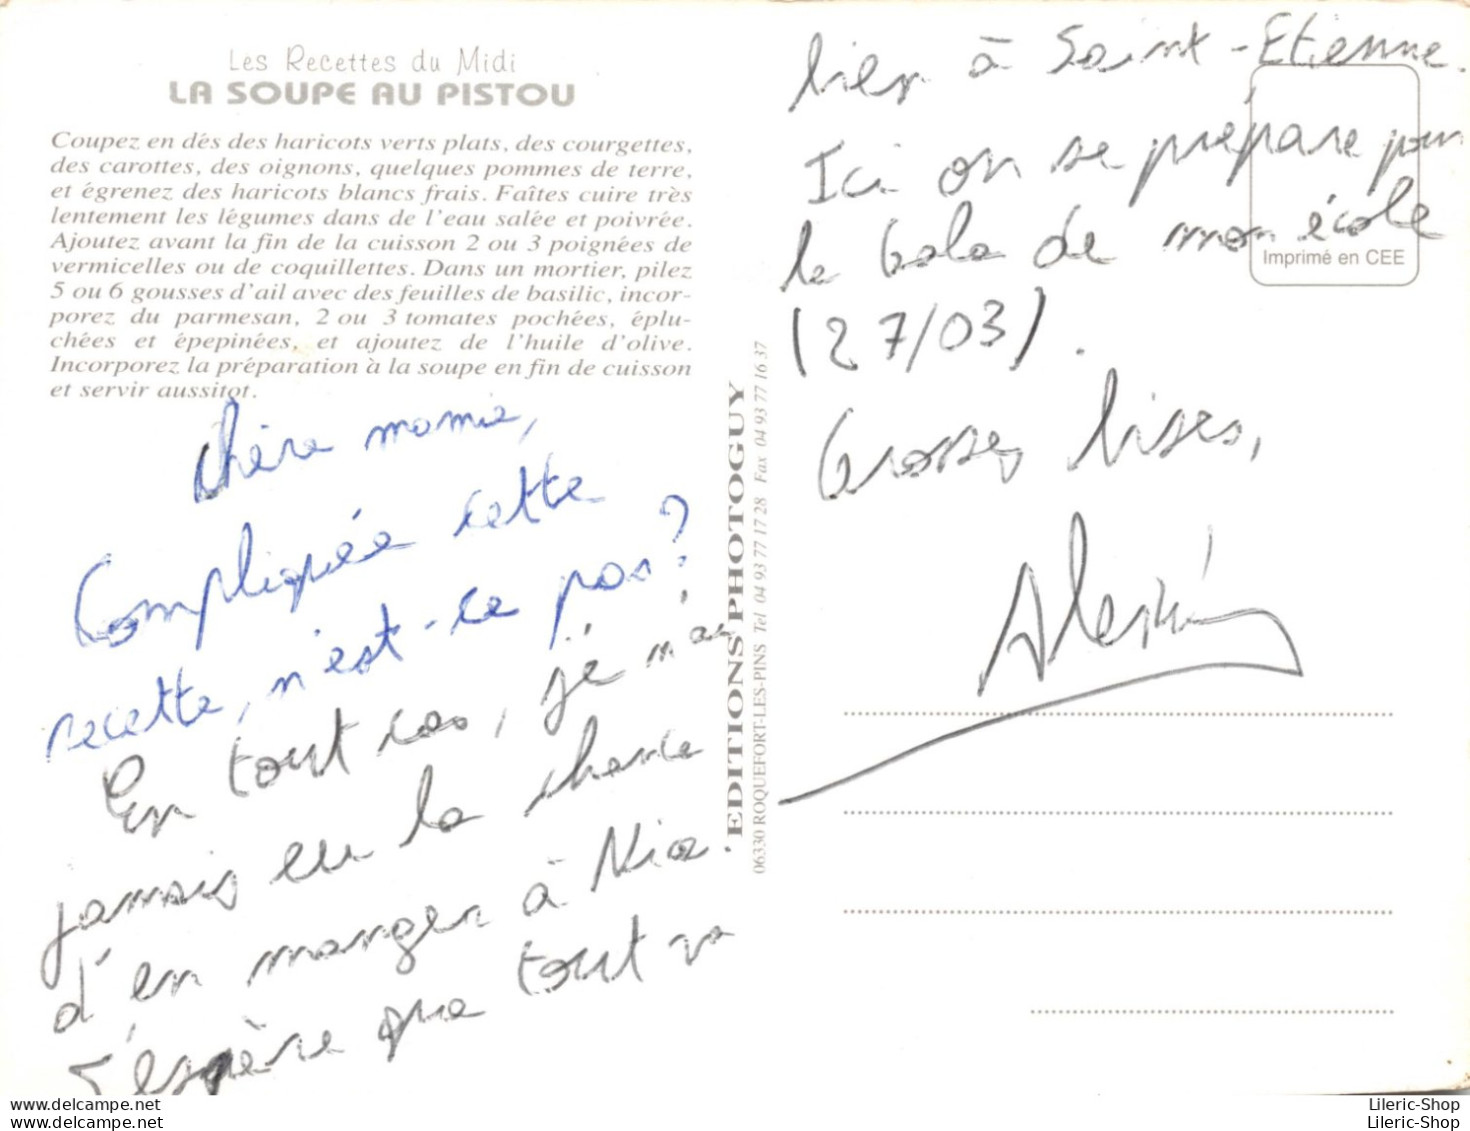 Les Recettes du Midi
LA SOUPE AU PISTOU
Coupez en dés des haricots verts plats, des courgettes,
des carottes, des oignons, quelques pommes de terre,
et égrenez des haricots blancs frais. Faîtes cuire très
lentement les légumes dans de l'eau salée et poivrée.
Ajoutez avant la fin de la cuisson 2 ou 3 poignées de
vermicelles ou de coquillettes. Dans un mortier, pilez
5 ou 6 gousses d'ail avec des feuilles de basilic, incor-
porez du parmesan, 2 ou 3 tomates pochées, éplu-
chées et épepinées, et ajoutez de l'huile d'olive.
Incorporez la préparation à la soupe en fin de cuisson
et servir aussitot.
Chère mamie,
Compliquée cette
recette, n'est-ce pas?
En tout cas, je n'ai
jamais eu la chance
d'en manger à Nice.
J'espère que tout va
bien à Saint-Etienne.
Ici on se prépare pour
le Gala de mon école
(27/03).
Grosses bises,
EDITIONS PHOTOGUY
06330 ROQUEFORT-LES-PINS Tel 04 93 77 17 28 Fax 04 93 77 16 37
Imprimé en CEE
Lileric-Shop
Lileric-Shop
www.delcampe.net
www.delcampe.net